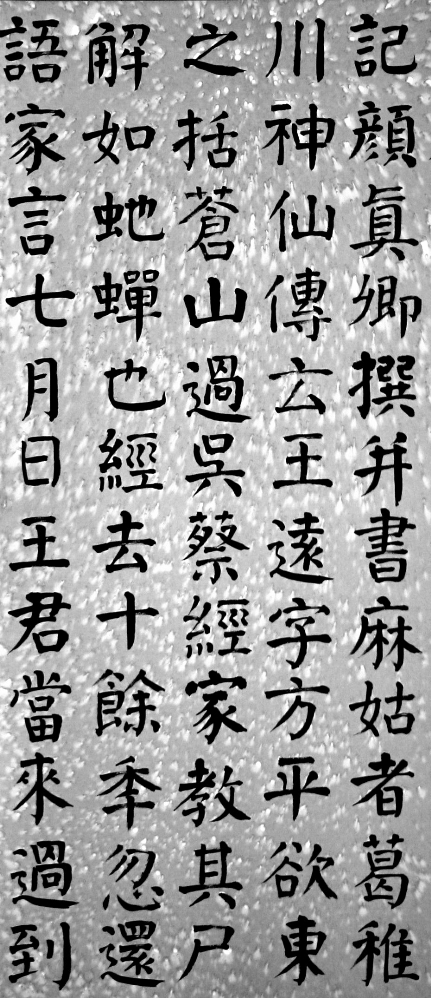 記顏真卿撰并書麻姑者葛稚
川神仙傳云王遠字方平欲東
之括蒼山過吳蔡經家教其尸
解如虵蟬也經去十餘季忽還
語家言七月日王君當來過到